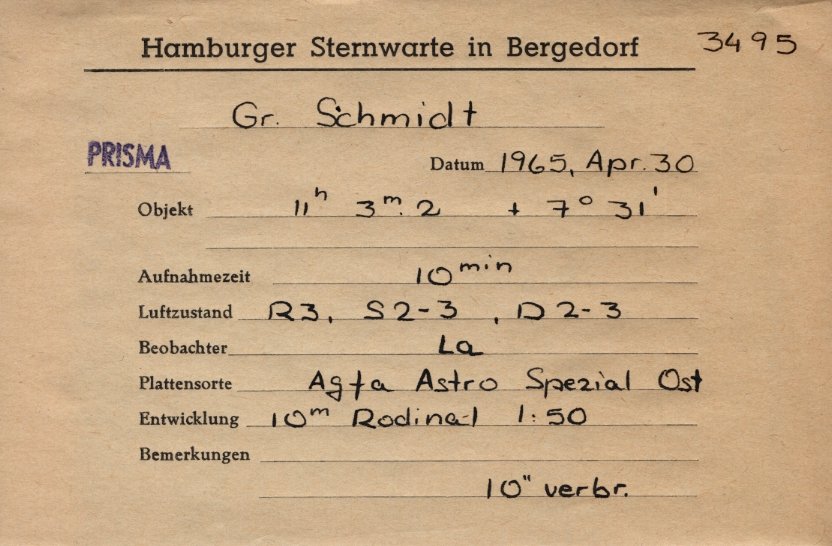 Hamburger Sternwarte in Bergedorf 3495
Gr. Schmidt
PRISMA Datum 1965, Apr. 30
Objekt 11ʰ 3ᵐ.2 + 7° 31'
Aufnahmezeit 10ᵐⁱⁿ
Luftzustand R3, S2-3, D2-3
Beobachter La
Plattensorte Agfa Astro Spezial Ost
Entwicklung 10ᵐ Rodinal 1:50
Bemerkungen
10" verbr.